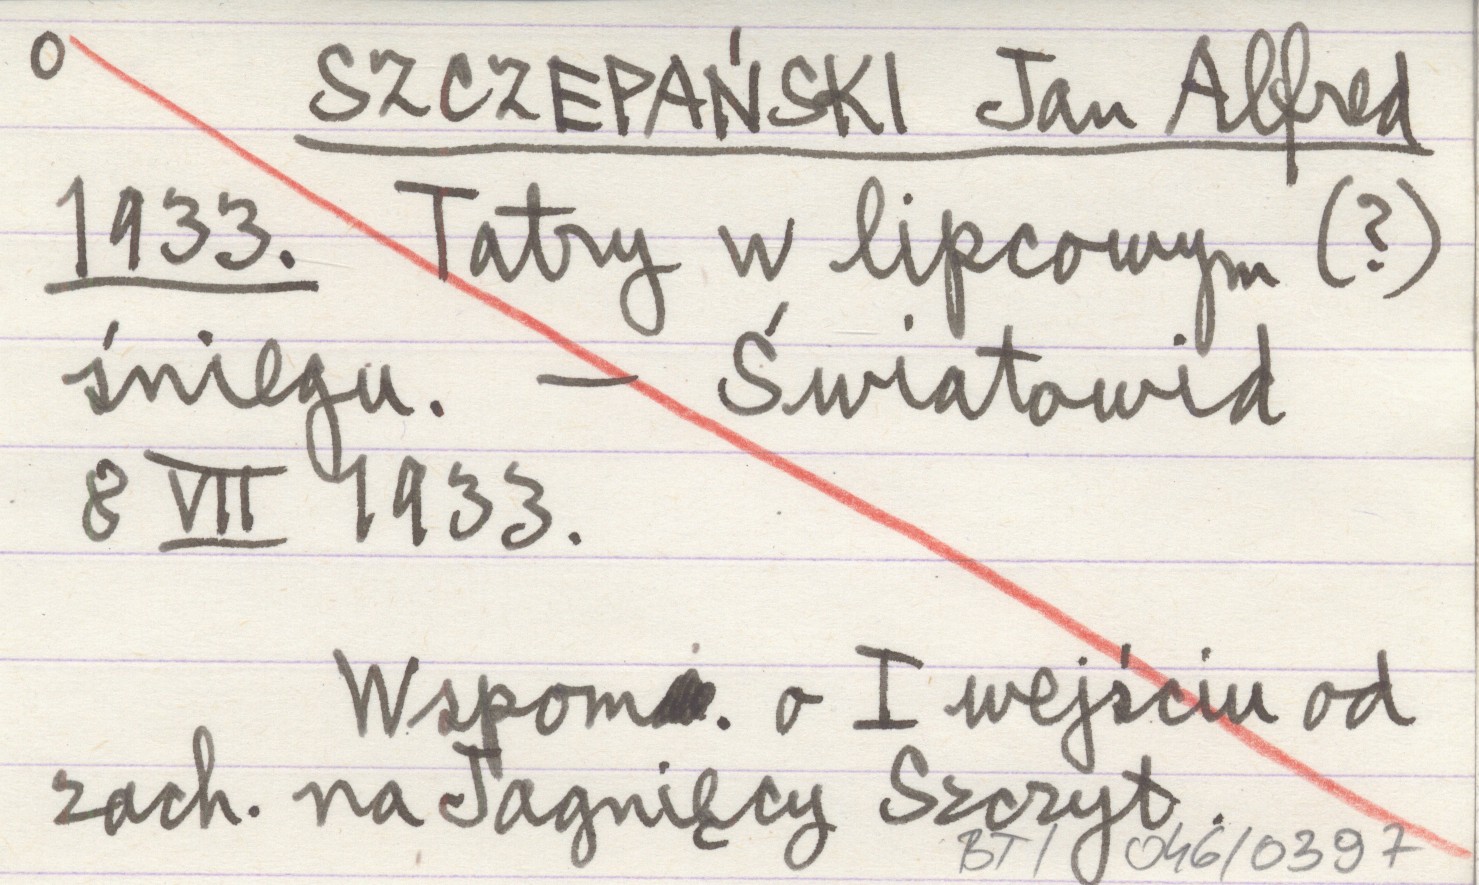 o SZCZEPAŃSKI Jan Alfred
1933. Tatry w lipcowym (?)
śniegu. — Światowid
8 VII 1933.
Wspom. o I wejściu od
zach. na Jagnięcy Szczyt.
BT/ 046/0397